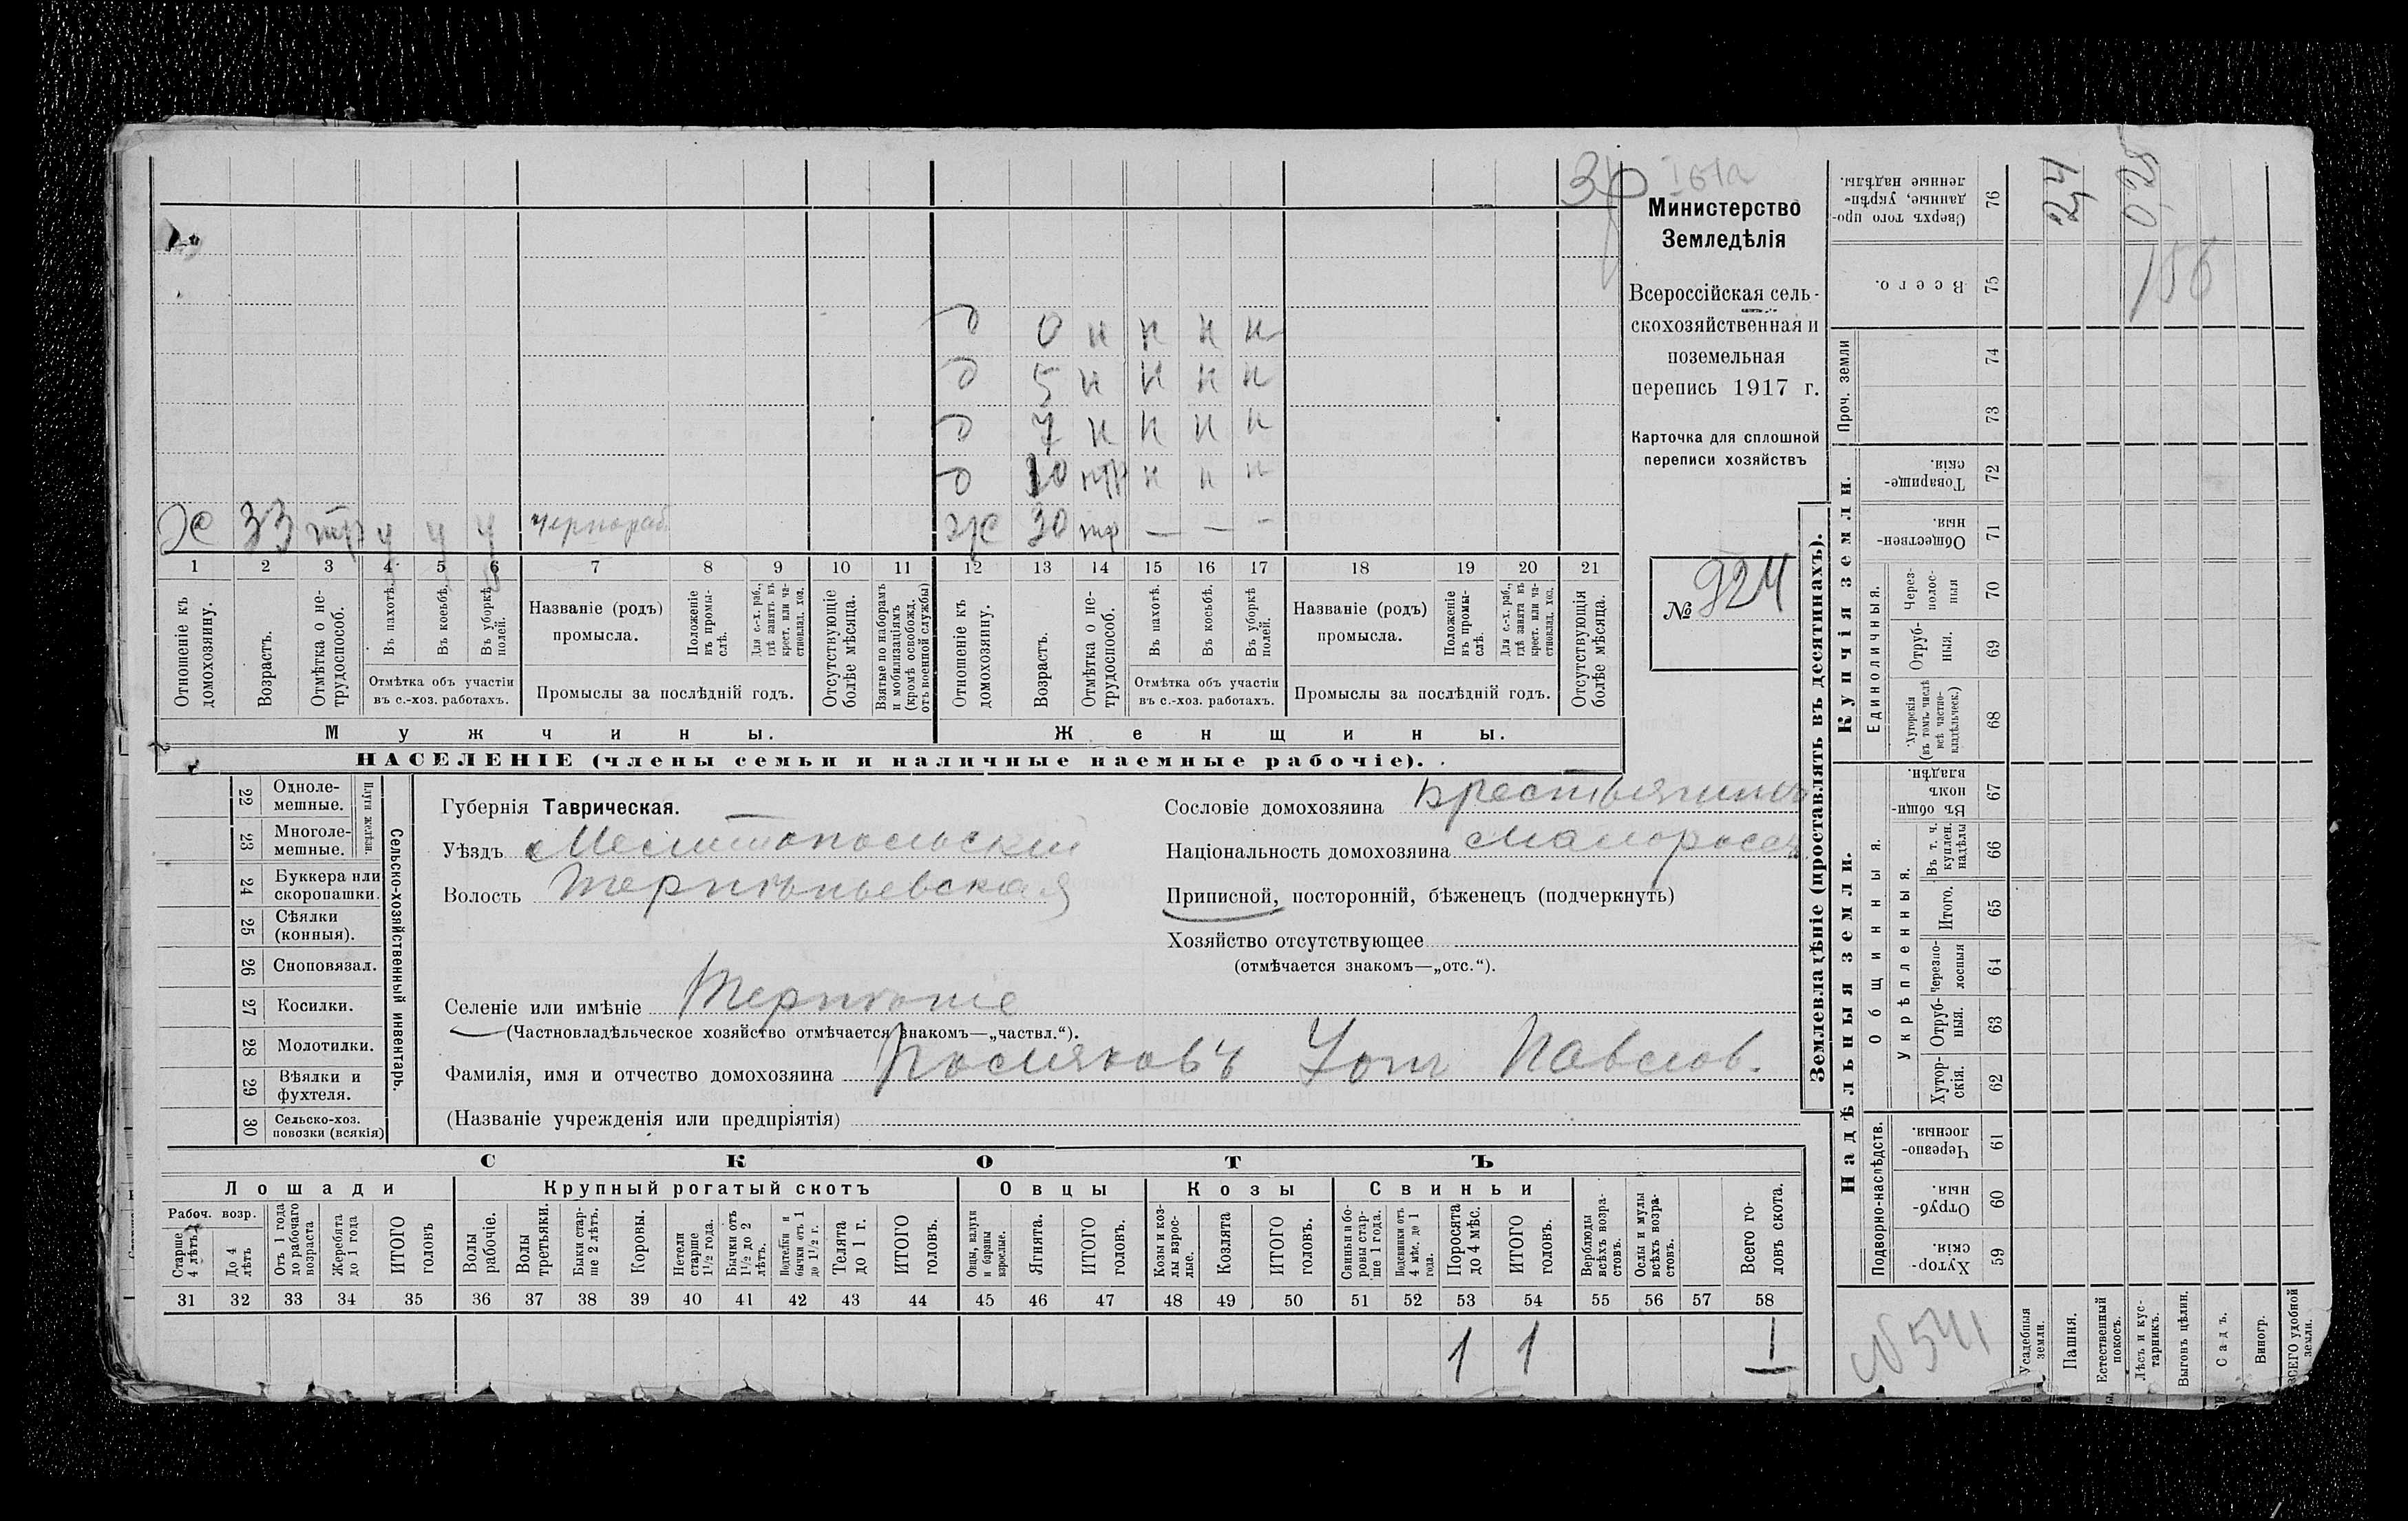 Министерство
Земледѣлія
Всероссійская сель-
скохозяйственная и
поземельная
перепись 1917 г.
Карточка для сплошной
переписи хозяйствъ
№ 924
д 0 н н н н
д 5 н н н н
д 7 н н н н
д 10 нтр н н н
Х 33 тр у у у чернораб
ж 30 тр — — —
1 2 3 4 5 6 7 8 9 10 11 12 13 14 15 16 17 18 19 20 21
Отношеніе къ домохозяину.
Возрастъ.
Отмѣтка о не-трудоспособ.
Въ пахотѣ.
Въ косьбѣ.
Въ уборкѣ полей.
Отмѣтка объ участіи въ с.-хоз. работахъ.
Названіе (родъ) промысла.
Положеніе въ промы-слѣ.
Для с.-х. раб., гдѣ занятъ въ крест. или ча-стновлад. хоз.
Промыслы за послѣдній годъ.
Отсутствующіе болѣе мѣсяца.
Взятые по наборамъ и мобилизаціямъ (кромѣ освобожд. отъ военной службы)
Отношеніе къ домохозяину.
Возрастъ.
Отмѣтка о не-трудоспособ.
Въ пахотѣ.
Въ косьбѣ.
Въ уборкѣ полей.
Отмѣтка объ участіи въ с.-хоз. работахъ.
Названіе (родъ) промысла.
Положеніе въ промы-слѣ.
Для с.-х. раб., гдѣ занята въ крест. или ча-стновлад. хоз.
Промыслы за послѣдній годъ.
Отсутствующія болѣе мѣсяца.
Мужчины.
Женщины.
НАСЕЛЕНІЕ (члены семьи и наличные наемные рабочіе).
22 Одноле-мешные.
23 Многоле-мешные.
Плуги желѣзн.
24 Буккера или скоропашки.
25 Сѣялки (конныя).
26 Сноповязал.
27 Косилки.
28 Молотилки.
29 Вѣялки и фухтеля.
30 Сельско-хоз. повозки (всякія)
Сельско-хозяйственный инвентарь.
Губернія Таврическая.
Уѣздъ Мелитопольскій
Волость Терпѣньевская
Селеніе или имѣніе Терпѣніе
(Частновладѣльческое хозяйство отмѣчается знакомъ—„частвл.“).
Фамилія, имя и отчество домохозяина Павлов.
(Названіе учрежденія или предпріятія)
Сословіе домохозяина Крестьянинъ
Національность домохозяина Малоросс
Приписной, посторонній, бѣженецъ (подчеркнуть)
Хозяйство отсутствующее
(отмѣчается знакомъ—„отс.“).
СКОТЪ
Лошади Крупный рогатый скотъ Овцы Козы Свиньи
Рабоч. возр.
Старше 4 лѣтъ.
До 4 лѣтъ
Отъ 1 года до рабочаго возраста
Жеребята до 1 года
ИТОГО головъ
Волы рабочіе.
Волы третьяки.
Быки стар-ше 2 лѣтъ.
Коровы.
Нетели старше 1½ года.
Бычки отъ 1½ до 2 лѣтъ.
Подтелки и бычки отъ 1 до 1½ г.
Телята до 1 г.
ИТОГО головъ.
Овцы, валухи и бараны взрослые.
Ягнята.
ИТОГО головъ.
Козы и коз-лы взрос-лые.
Козлята
ИТОГО головъ.
Свиньи и бо-ровы стар-ше 1 года.
Подсвинки отъ 4 мѣс. до 1 года.
Поросята до 4 мѣс.
ИТОГО головъ.
Верблюды всѣхъ возра-стовъ.
Ослы и мулы всѣхъ возра-стовъ.
Всего го-ловъ скота.
31 32 33 34 35 36 37 38 39 40 41 42 43 44 45 46 47 48 49 50 51 52 53 54 55 56 57 58
1 1 1
Землевладѣніе (проставлять въ десятинахъ).
Надѣльныя земли.
Купчія земли.
Проч. земли
Подворно-наслѣдств.
Общинныя.
Укрѣпленныя.
Единоличныя.
Хутор-скія. 59
Отруб-ныя. 60
Черезпо-лосныя. 61
Хутор-скія. 62
Отруб-ныя. 63
черезпо-лосныя 64
Итого. 65
Въ т. ч. куплен. надѣлы 66
Въ общи-номъ владѣн. 67
Хуторскія (въ томъ числѣ всѣ частно-владѣльческ.) 68
Отруб-ныя. 69
Через-полос-ныя 70
Обществен-ныя. 71
Товарище-скія. 72
73
74
Всего. 75
Сверхъ того про-данные, укрѣп-ленные надѣлы. 76
24
0,28
156
N 541
Усадебныя земли.
Пашня.
Естественный покосъ.
Лѣсъ и кус-тарникъ.
Выгонъ цѣлин.
Садъ.
Виногр.
ВСЕГО удобной земли.